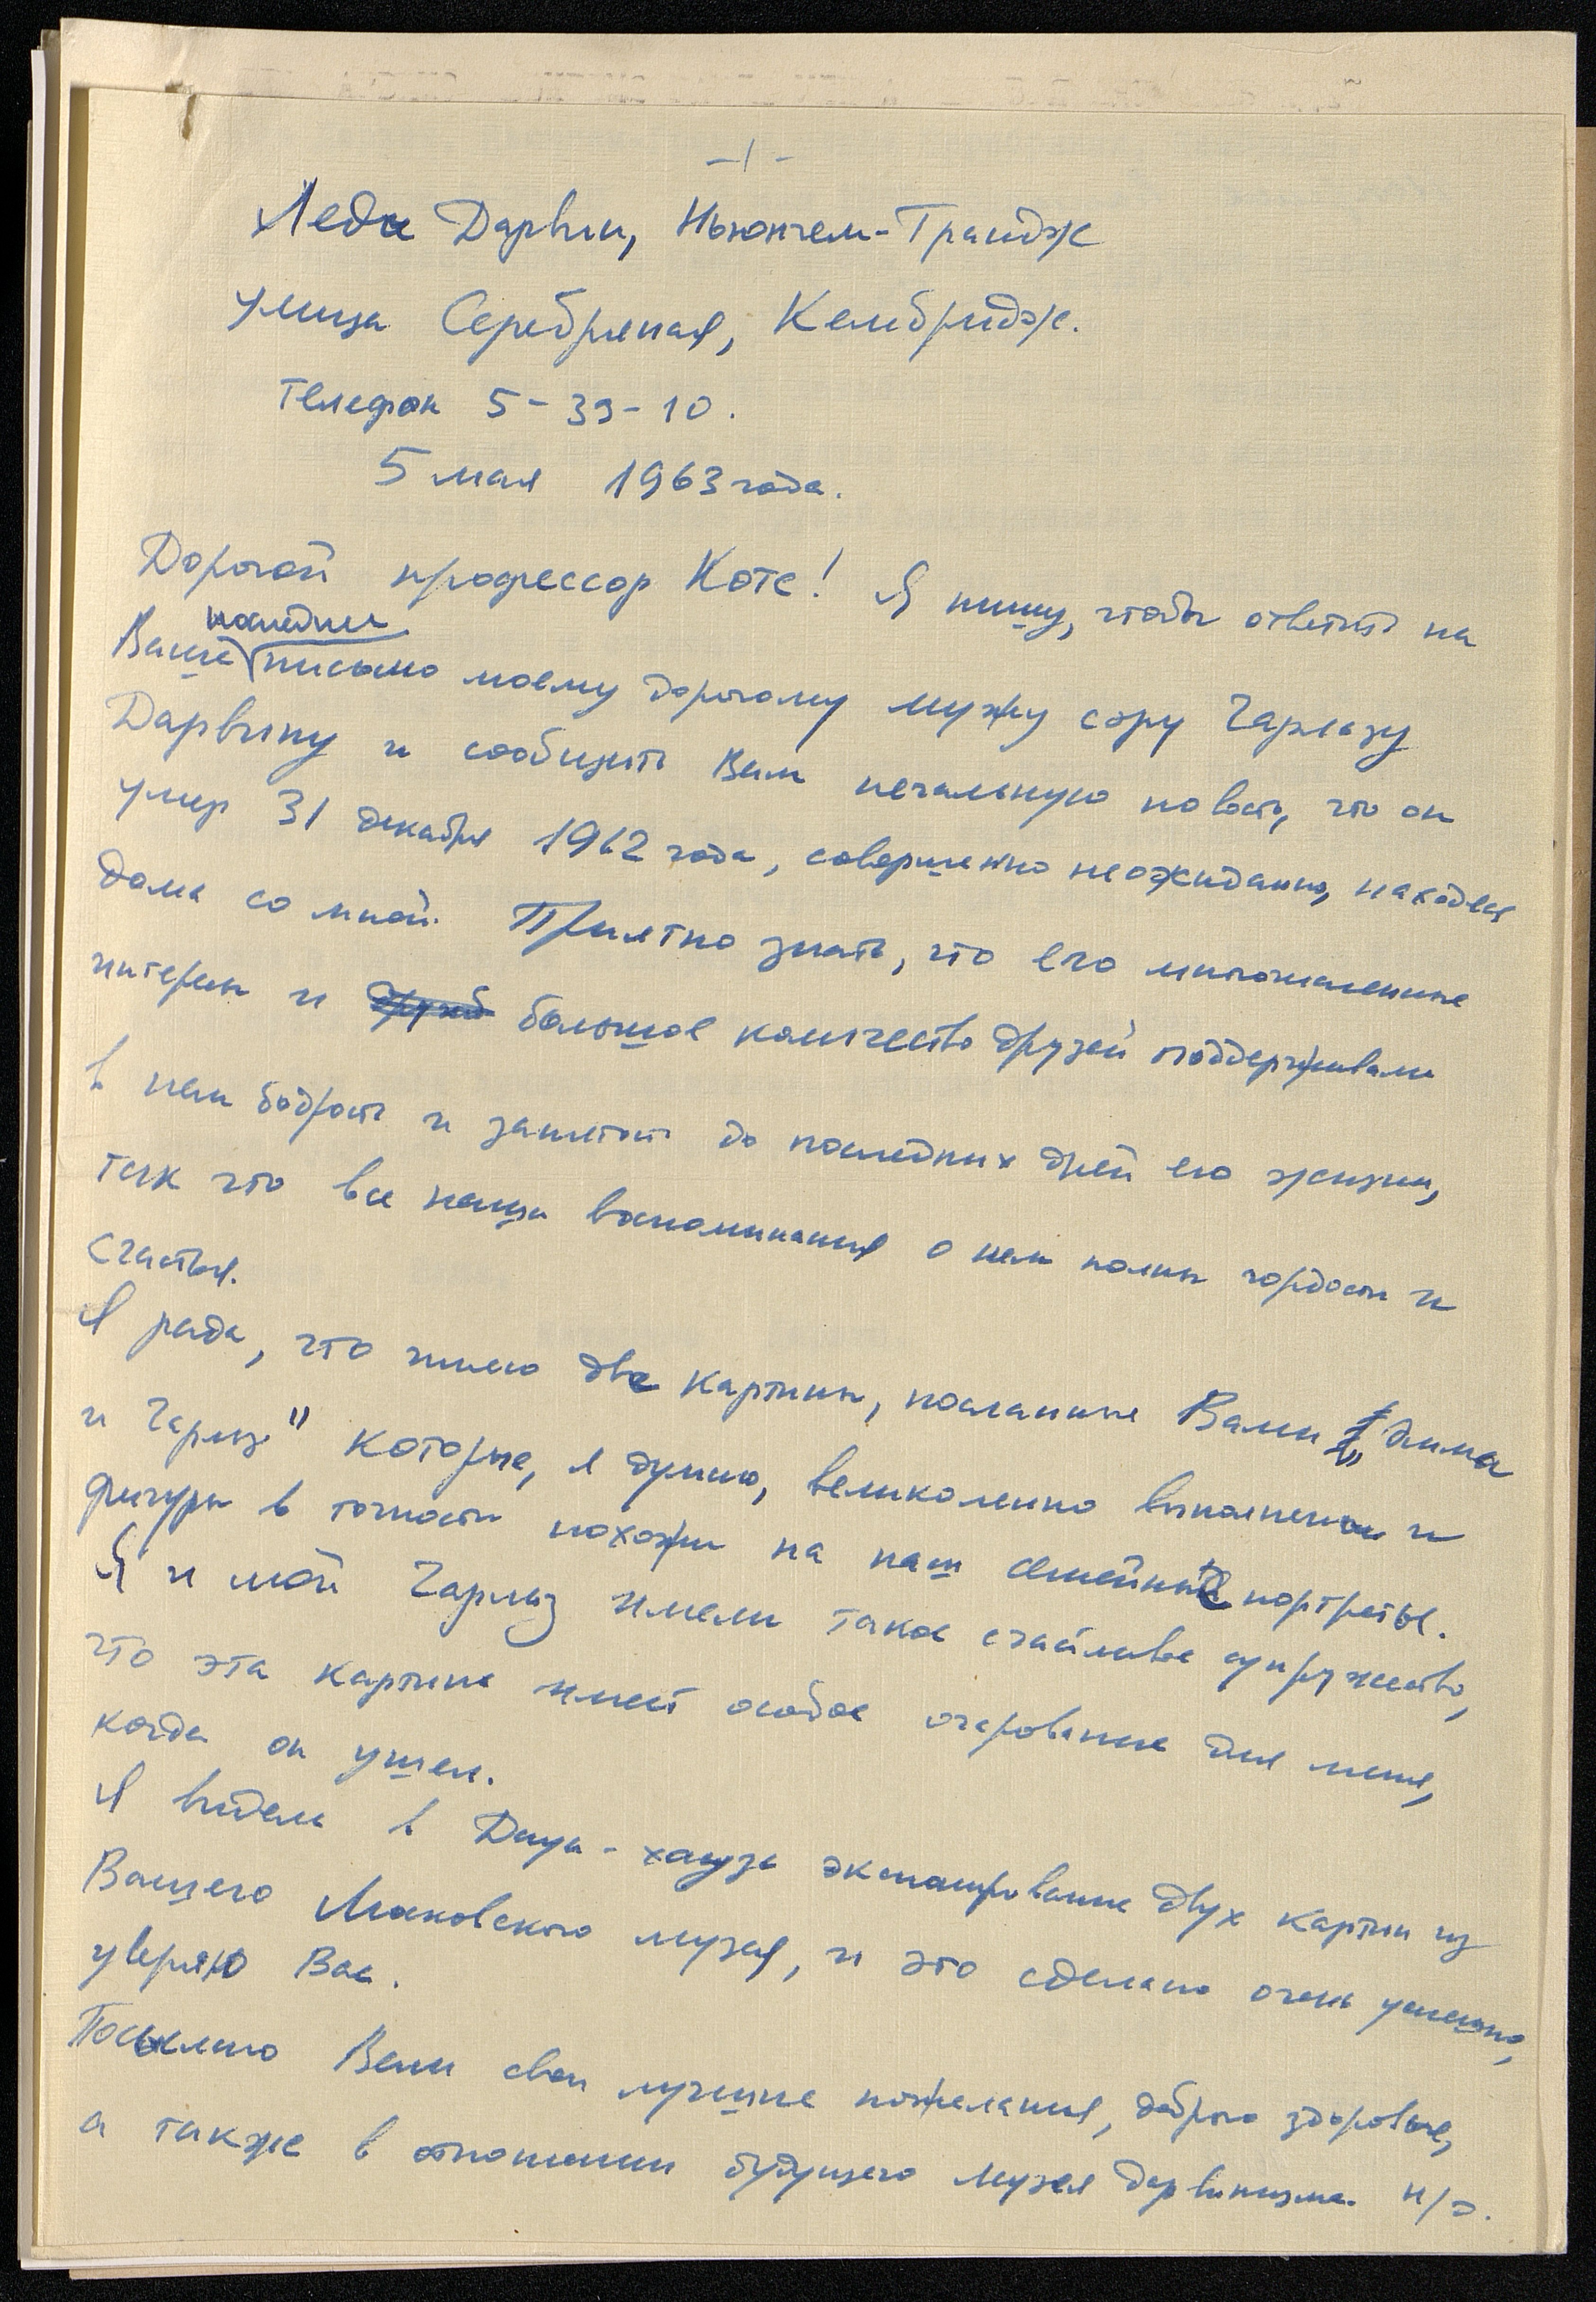 -1-
Леди Дарвин, Ньюнгем-Грандж
улица Серебряная, Кембридж.
Телефон 5-39-10.
5 мая 1963 года.
Дорогой профессор Котс! Я пишу, чтобы ответить на
последнее
Ваше письмо моему дорогому мужу сэру Чарльзу
Дарвину и сообщить Вам печальную новость, что он
умер 31 декабря 1962 года, совершенно неожиданно, находясь
дома со мной. Приятно знать, что его многочисленные
интересы и большое количество друзей поддерживали
в нем бодрость и занятость до последних дней его жизни,
так что все наши воспоминания о нем полны гордости и
счастья.
Я рада, что имею две картины, посланные Вами „Эмма
и Чарльз" которые, я думаю, великолепно выполнены и
фигуры в точности похожи на наш семейные портреты.
Я и мой Чарльз имели такое счастливое супружество,
что эта картина имеет особое очарование для меня,
когда он ушел.
Я видела в Даун-хаузе экспонирование двух картин из
Вашего Московского музея, и это сделано очень успешно,
уверяю Вас.
Посылаю Вам свои лучшие пожелания, доброго здоровья,
а также в отношении будущего музея дарвинизма. н/о.